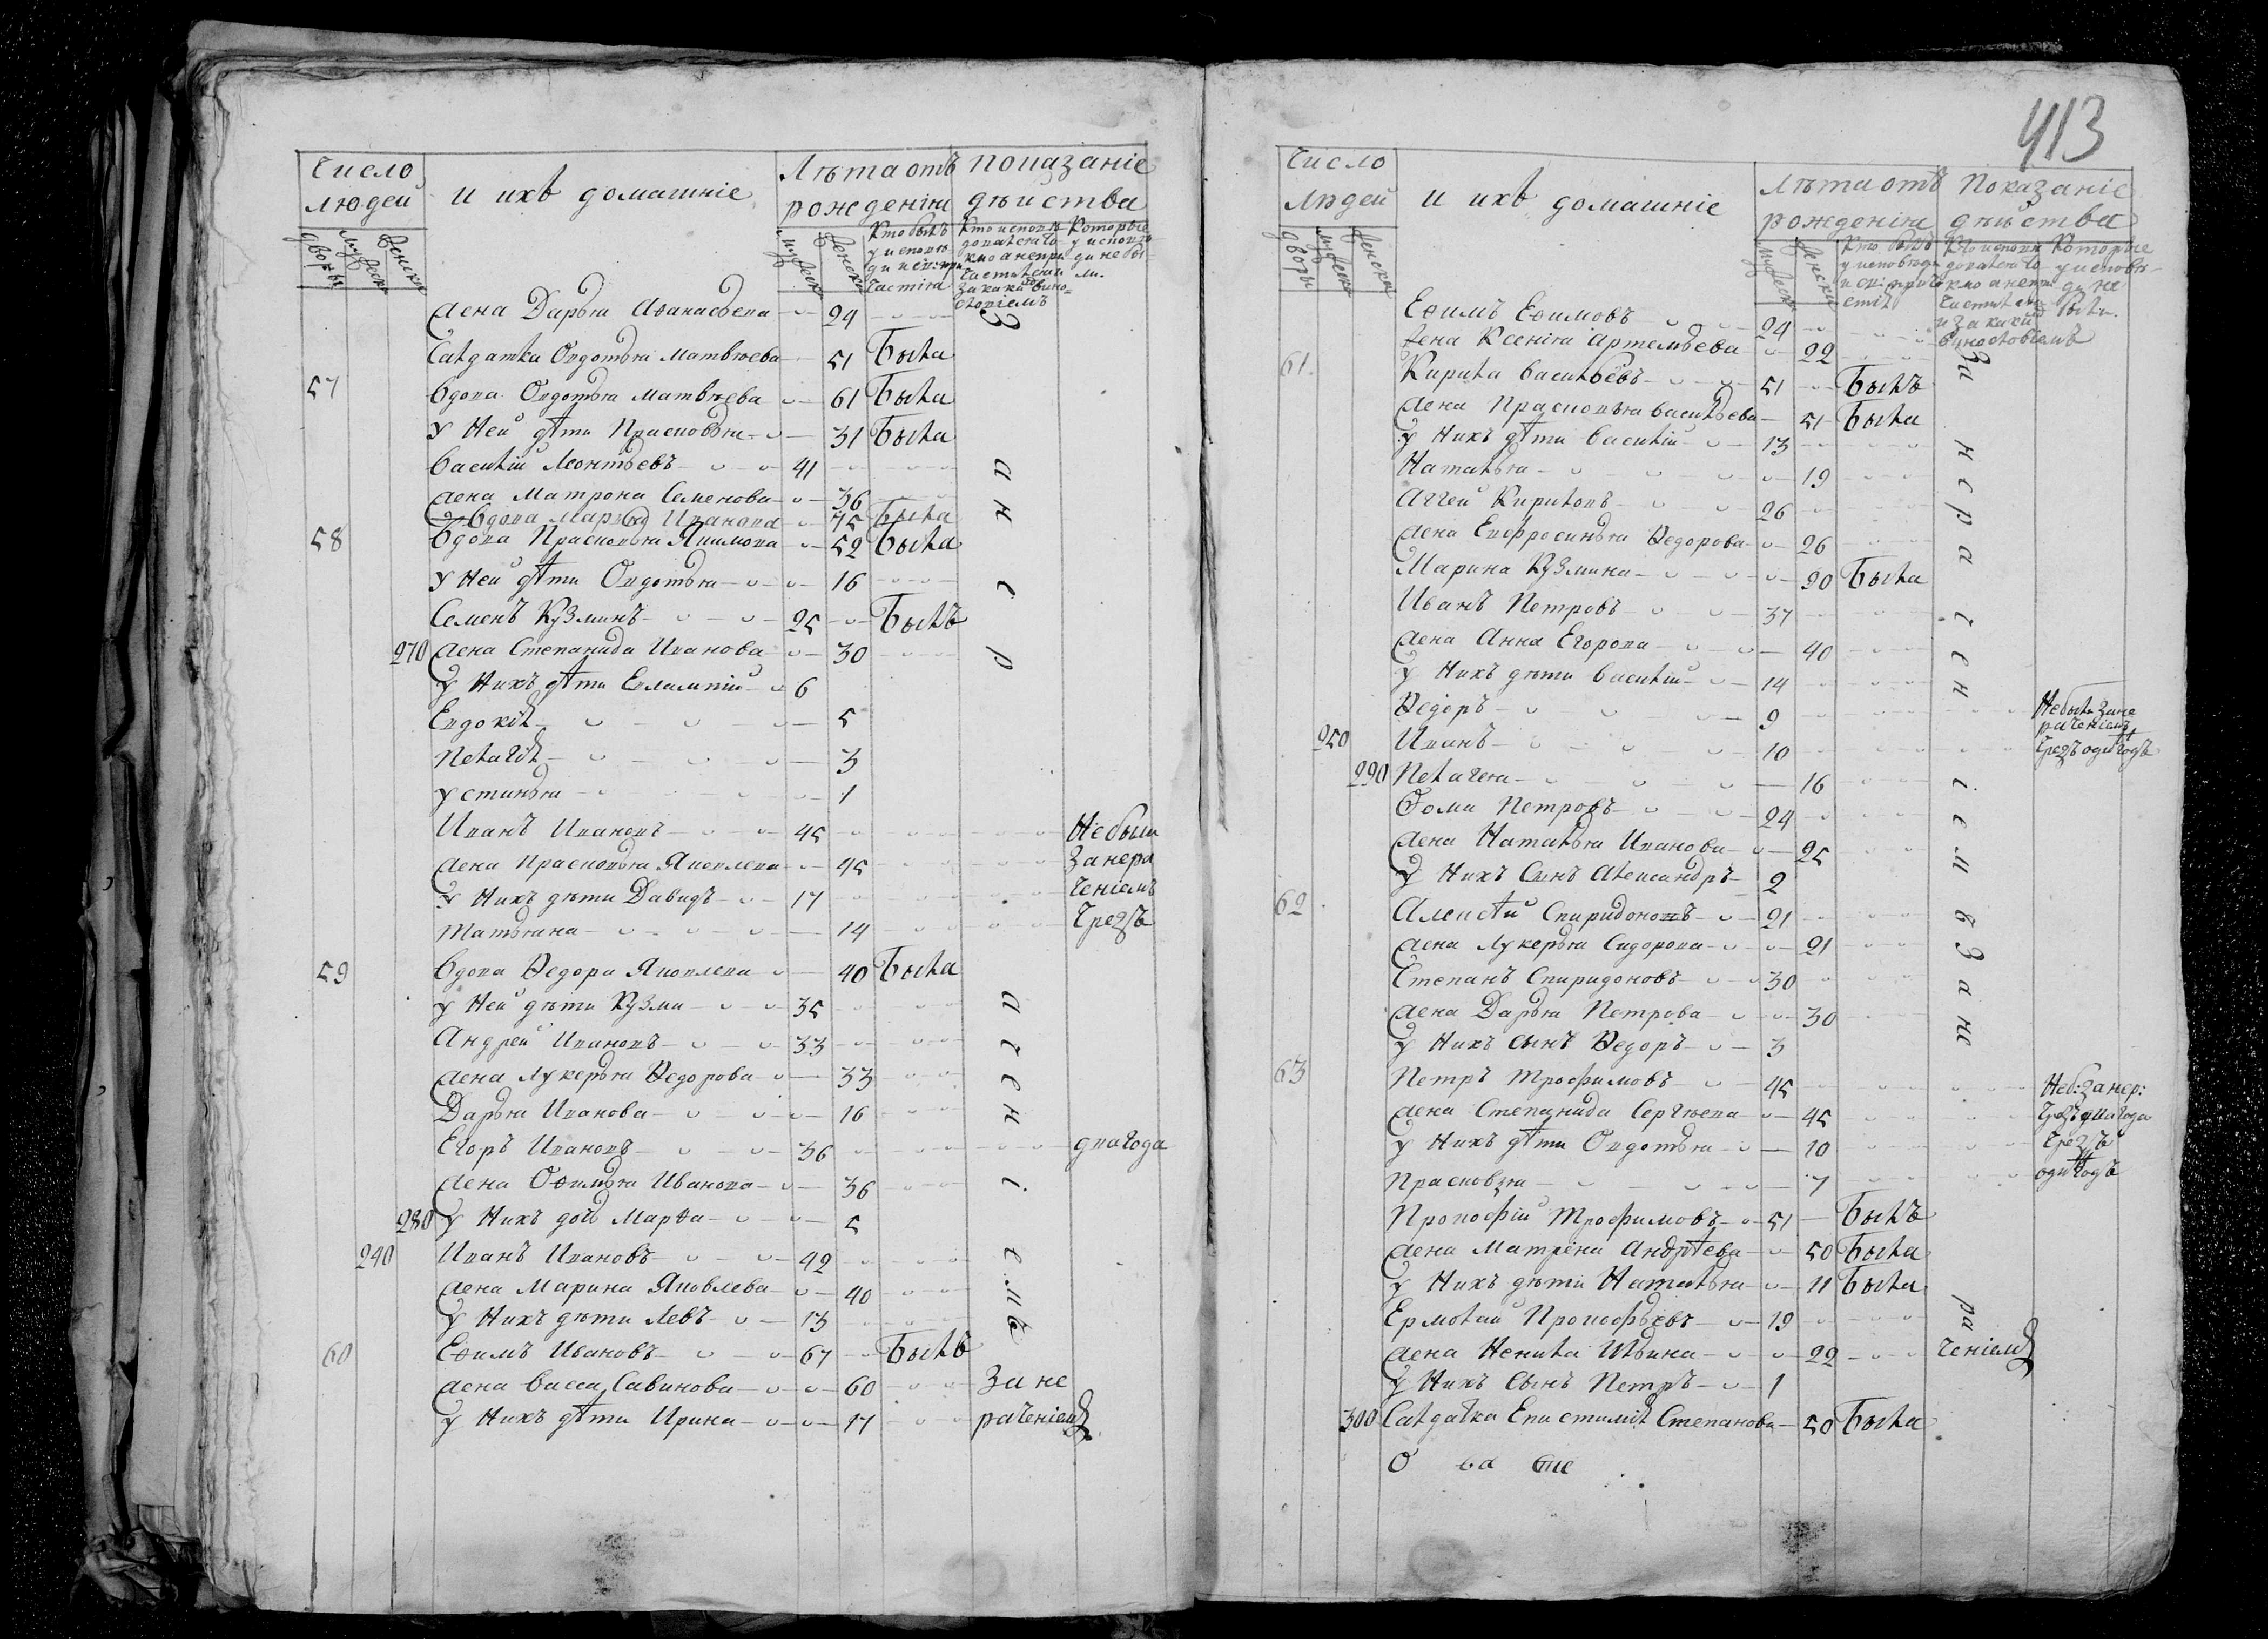 Число людей
и ихъ домашніе
Лѣта отъ рожденія
показаніе дѣиства
дворы
мужеска
женска
мужеска
женска
Кто былъ у исповѣди и св: причастія
Кто исповѣдовался а не причастился и за какимъ винословіемъ
Которые у исповѣди не были.
жена Дарья Аѳанасьева 24
Салдатка Овдотья Матвѣева 51 была
57 вдова Овдотья Матвѣева 61 была
у ней дѣти Прасковья 31 была
Василій Леонтьевъ 41
жена Матрона Семенова 36
вдова Марѳа Иванова 75 была
58 вдова Прасковья Якимова 52 была
у ней дѣти Овдотья 16
Семенъ Кузминъ 25 былъ
270 жена Степанида Иванова 30
у нихъ дѣти Евлампій 6
Евдокія 5
Пелагія 3
устинья 1
Иванъ Ивановъ 45 не были
жена Прасковья Яковлева 45 за нера
у нихъ дѣти Давидъ 17 ченіемъ
Татьяна 14 чрезъ
59 вдова Ѳедора Яковлева 40 была
у ней дѣти Кузма 35
Андрей Ивановъ 33
жена Лукерья Ѳедорова 33
Дарья Иванова 16
Егоръ Ивановъ 36 два года
жена Оѳимья Иванова 36
280 у нихъ дочь Марѳа 5
240 Иванъ Ивановъ 42
жена Марина Яковлева 40
у нихъ дѣти Левъ 13
60 Еѳимъ Ивановъ 67 былъ
жена Васса Савинова 60 за не
у нихъ дѣти Ирина 17 раченіемъ
За нераченіемъ
413
Число людей
и ихъ домашніе
Лѣта отъ рожденія
Показаніе дѣйства
дворы
мужеска
женска
мужеска
женска
Кто былъ у исповѣди и св: причастія
Кто исповѣдовался а не причастился и за какимъ винословіемъ
Которые у исповѣди не были.
Еѳимъ Еѳимовъ 24
жена Ксенія Артемьева 22
61. Кирила Васильевъ 51 былъ
жена Прасковья Васильева 51 была
у нихъ дѣти Василій 13
Наталья 19
Аггей Кириловъ 26
жена Евфросинья Ѳедорова 26
Марина Кузмина 90 была
Иванъ Петровъ 37
жена Анна Егорова 40
у нихъ дѣти Василій 14
Ѳедоръ 9 не были за нераченіемъ
250 Иванъ 10 чрезъ одинъ годъ
290 Пелагея 16
Ѳома Петровъ 24
жена Наталья Иванова 25
у нихъ сынъ Александръ 2
62 Алексѣй Спиридоновъ 21
жена Лукерья Сидорова 21
Степанъ Спиридоновъ 30
жена Дарья Петрова 30
у нихъ сынъ Ѳедоръ 3
63 Петръ Трофимовъ 45 Не б: за нер:
жена Степанида Сергѣева 45 чрезъ два года
у нихъ дѣти Овдотья 10 чрезъ
Прасковья 7 одинъ годъ
Прокофій Трофимовъ 51 былъ
жена Матрена Андрѣева 50 была
у нихъ дѣти Наталья 11 была
Ермолай Прокофьевъ 19
жена Ненила Ильина 22
у нихъ сынъ Петръ 1
300 Салдатка Епистимія Степанова 50 была
За нераченіем за не
ра
ченіемъ